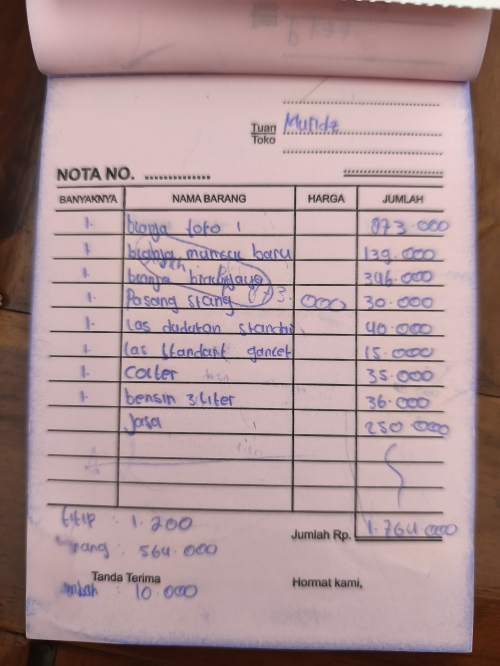 Tuan
Toko
Muridz
NOTA NO. ..............
BANYAKNYA NAMA BARANG HARGA JUMLAH
1. toko 1 873.000
1 baru 139.000
1. 346.000
1. Pasang stang 873.000 30.000
1. las dudukan 40.000
1. las standart 15.000
1. 35.000
1. bensin 3 liter 36.000
Jasa 250.000
Jumlah Rp. 1.764.000
titip : 1.200
: 564.000
Tanda Terima Hormat kami,
: 10.000